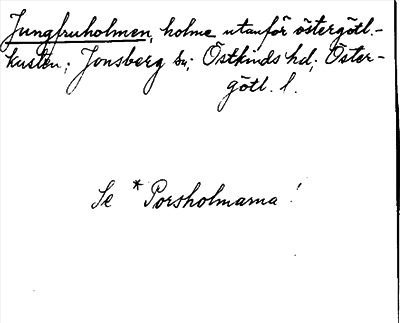 Jungfruholmen, holme utanför östergötl.-
kusten; Jonsberg sn; Östkinds hd; Öster-
götl. l.
Se *Porsholmarna!